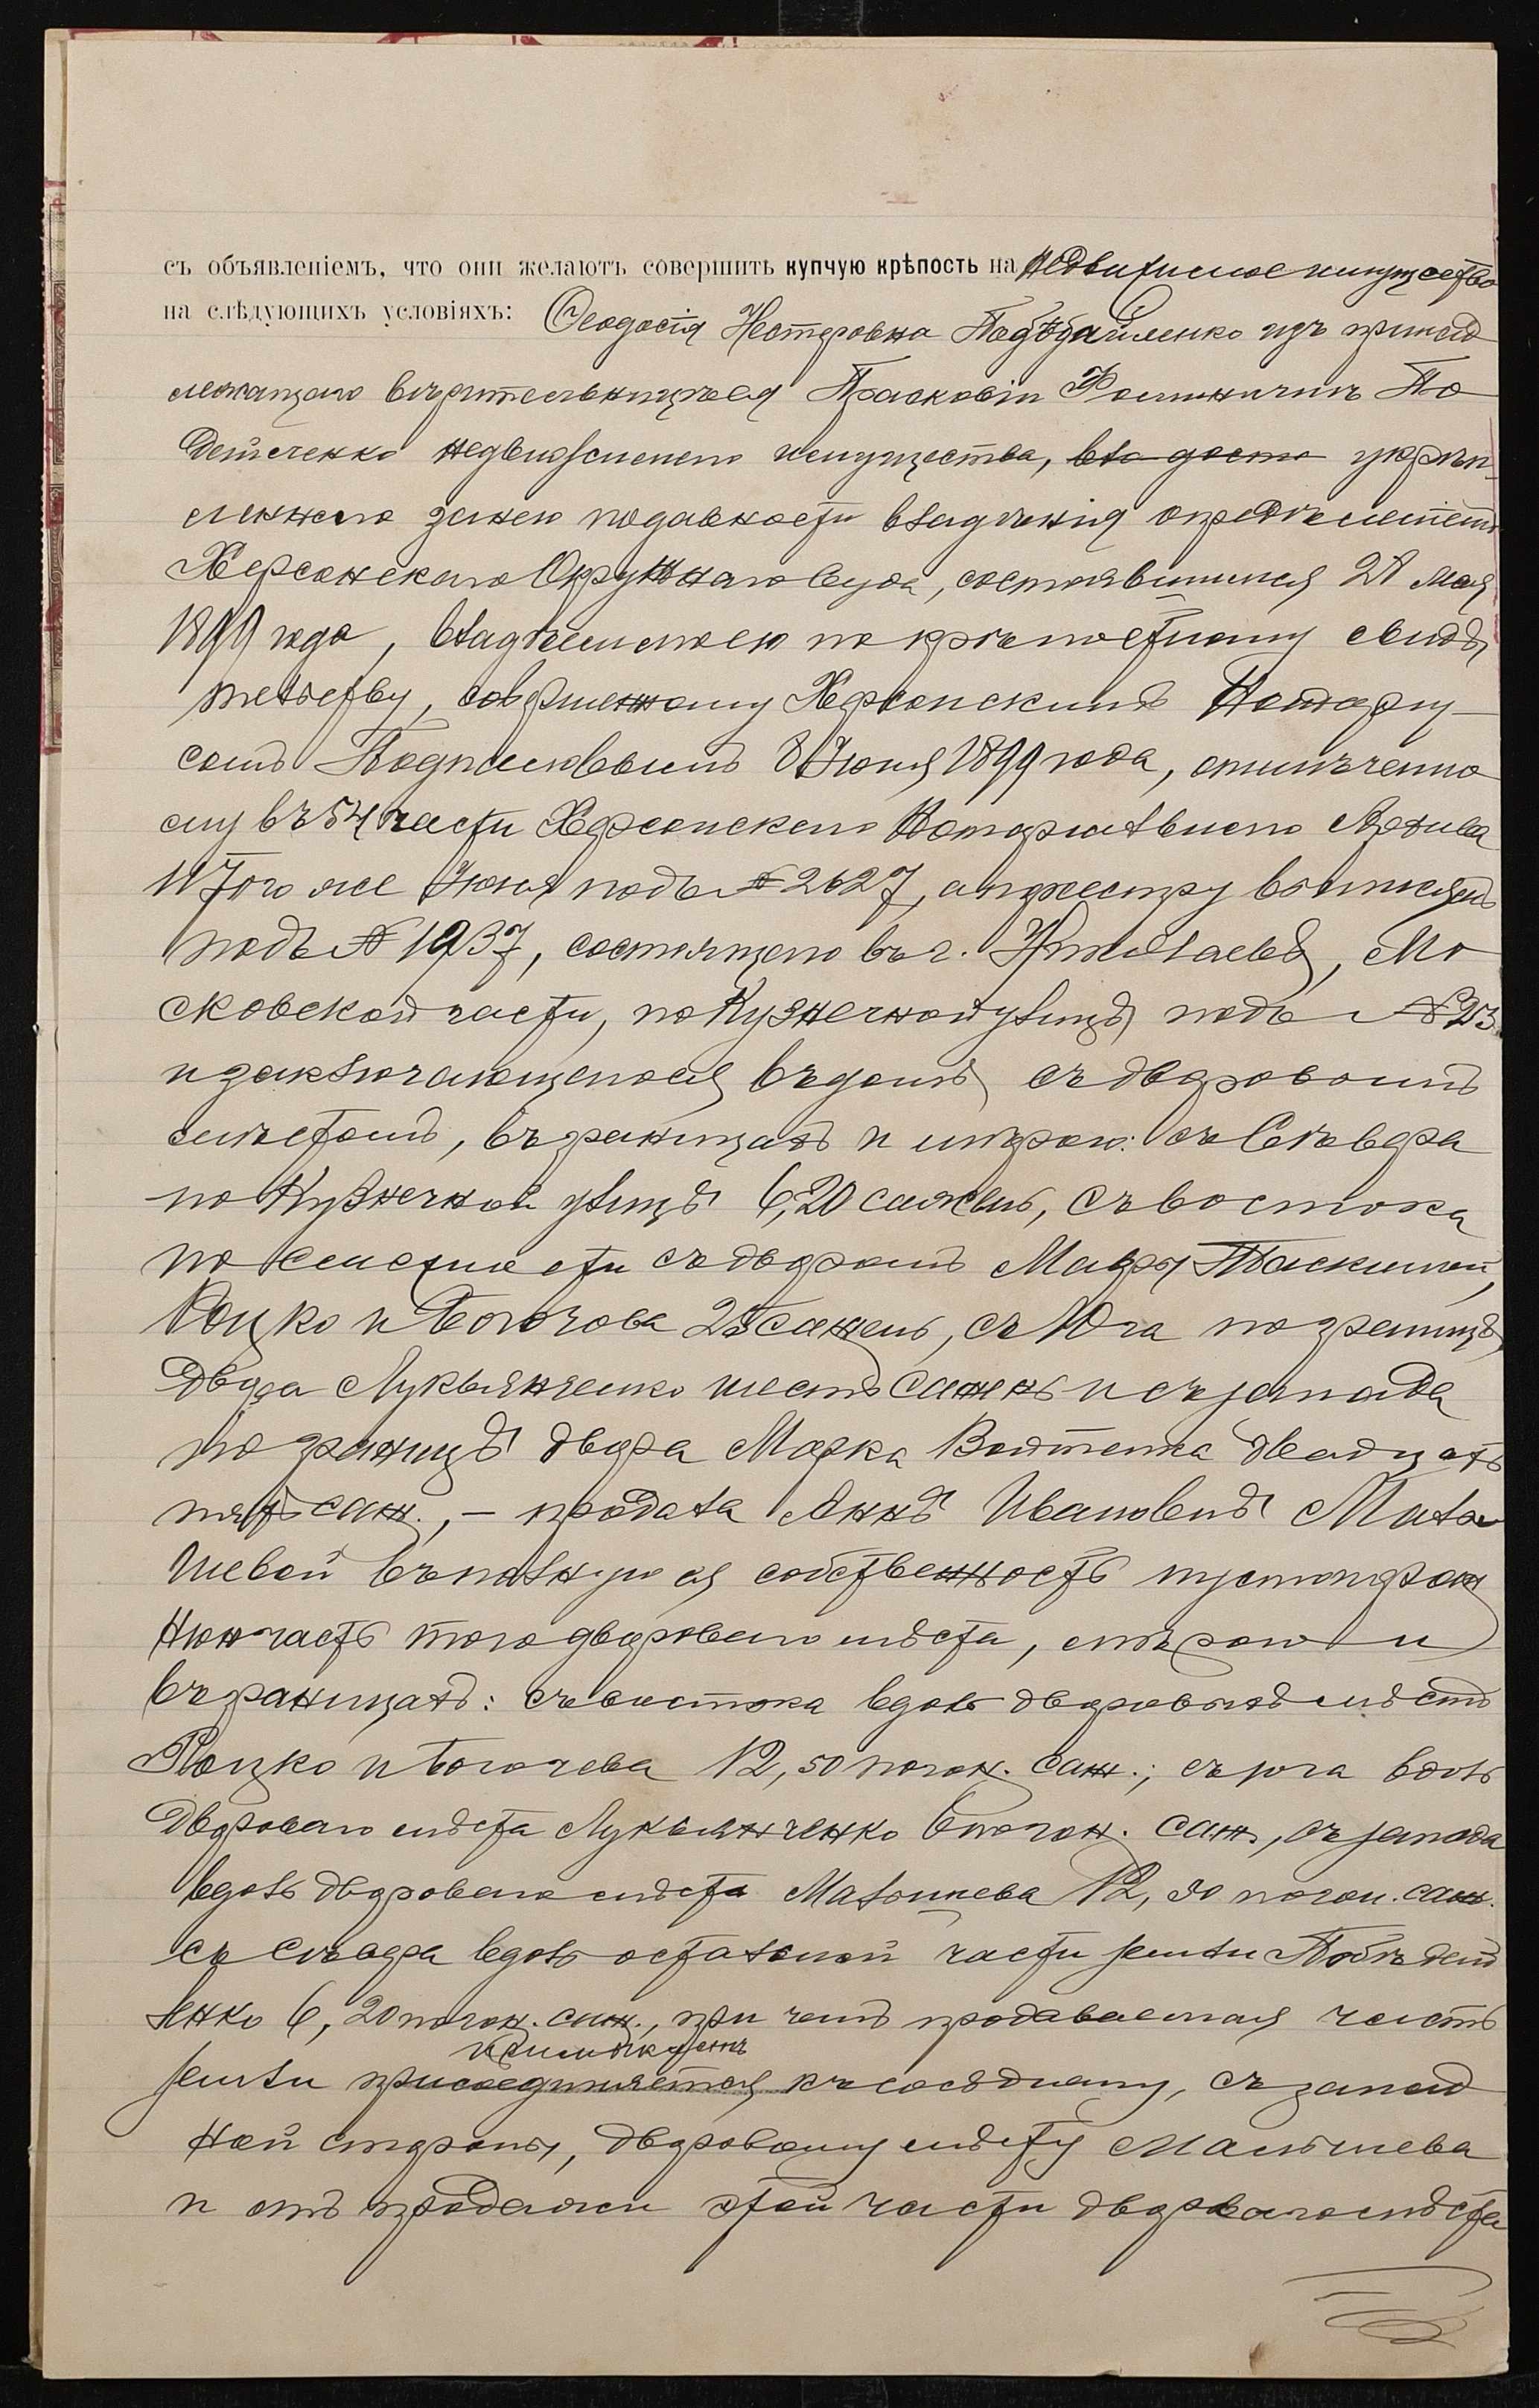 съ объявленіемъ, что они желаютъ совершить купчую крѣпость на недвижимое имущество
на слѣдующихъ условіяхъ: Ѳеодосія Несторовна изъ принад
лежащаго вѣрительницѣ ея Праскевіи По
недвижимаго имущества, владѣемаго укрѣп-
леннаго за нею по давности владѣнія опредѣленіемъ
Херсонскаго Окружнаго Суда, состоявшимся 28 мая
1899 года, владѣемаго ею по крѣпостному свидѣ
тельству, совершенному Херсонскимъ Нотаріу-
сомъ 8 Іюня 1899 года, отмѣченно
му въ 54 части Херсонскаго Нотаріальнаго Архива
11 того же Іюня подъ № 2627, а по реестру
подъ № 1937, состоящаго въ г. Николаевѣ, Мо
сковской части, по Кузнечной улицѣ подъ №
и заключающагося въ домѣ съ дворовымъ
мѣстомъ, въ границахъ и мѣрою: съ Сѣвера
по Кузнечной улицѣ 6,20 сажень, съ востока
по смежности съ дворомъ Мавры
Роцко и Богочова 25 сажень, съ Юга по границѣ
двора Лукьянченко шесть сажень и съ запада
по границѣ двора Марка Войтенка двадцать
пять саж., — продала Аннѣ Ивановнѣ Малы
шевой въ полную ея собственность пустопорож
нюю часть того двороваго мѣста, мѣрою и
въ границахъ: съ востока вдоль дворовыхъ мѣстъ
Роцко и Богочева 12,50 погон. саж.; съ юга вдоль
двороваго мѣста Лукьянченко 6 погон. саж., съ запада
вдоль двороваго мѣста Малышева 12,50 погон. саж.
съ Сѣвера вдоль остальной части земли Побѣдай
ленко 6,20 погон. саж., при чемъ продаваемая часть
примыкаетъ
земли присоединяется къ сосѣднему, съ запад
ной стороны, дворовому мѣсту Малышева
и отъ продажи этой части двороваго мѣста